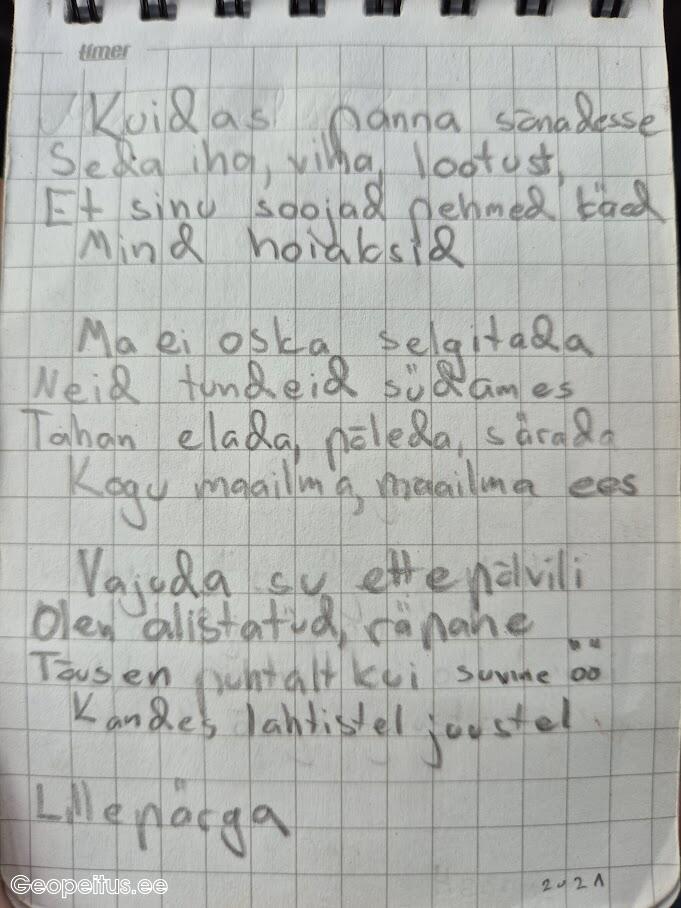 timer
Kuidas panna sõnadesse
Seda iha, viha, lootust,
Et sinu soojad pehmed käed
Mind hoiaksid
Ma ei oska selgitada
Neid tundeid südames
Tahan elada, põleda, särada
Kogu maailma, maailma ees
Vajuda su ette põlvili
Olen alistatud, räpane
Tõusen puhtalt kui suvine öö
Kandes lahtistel juustel
Lillepärga
2021
Geopeitus.ee